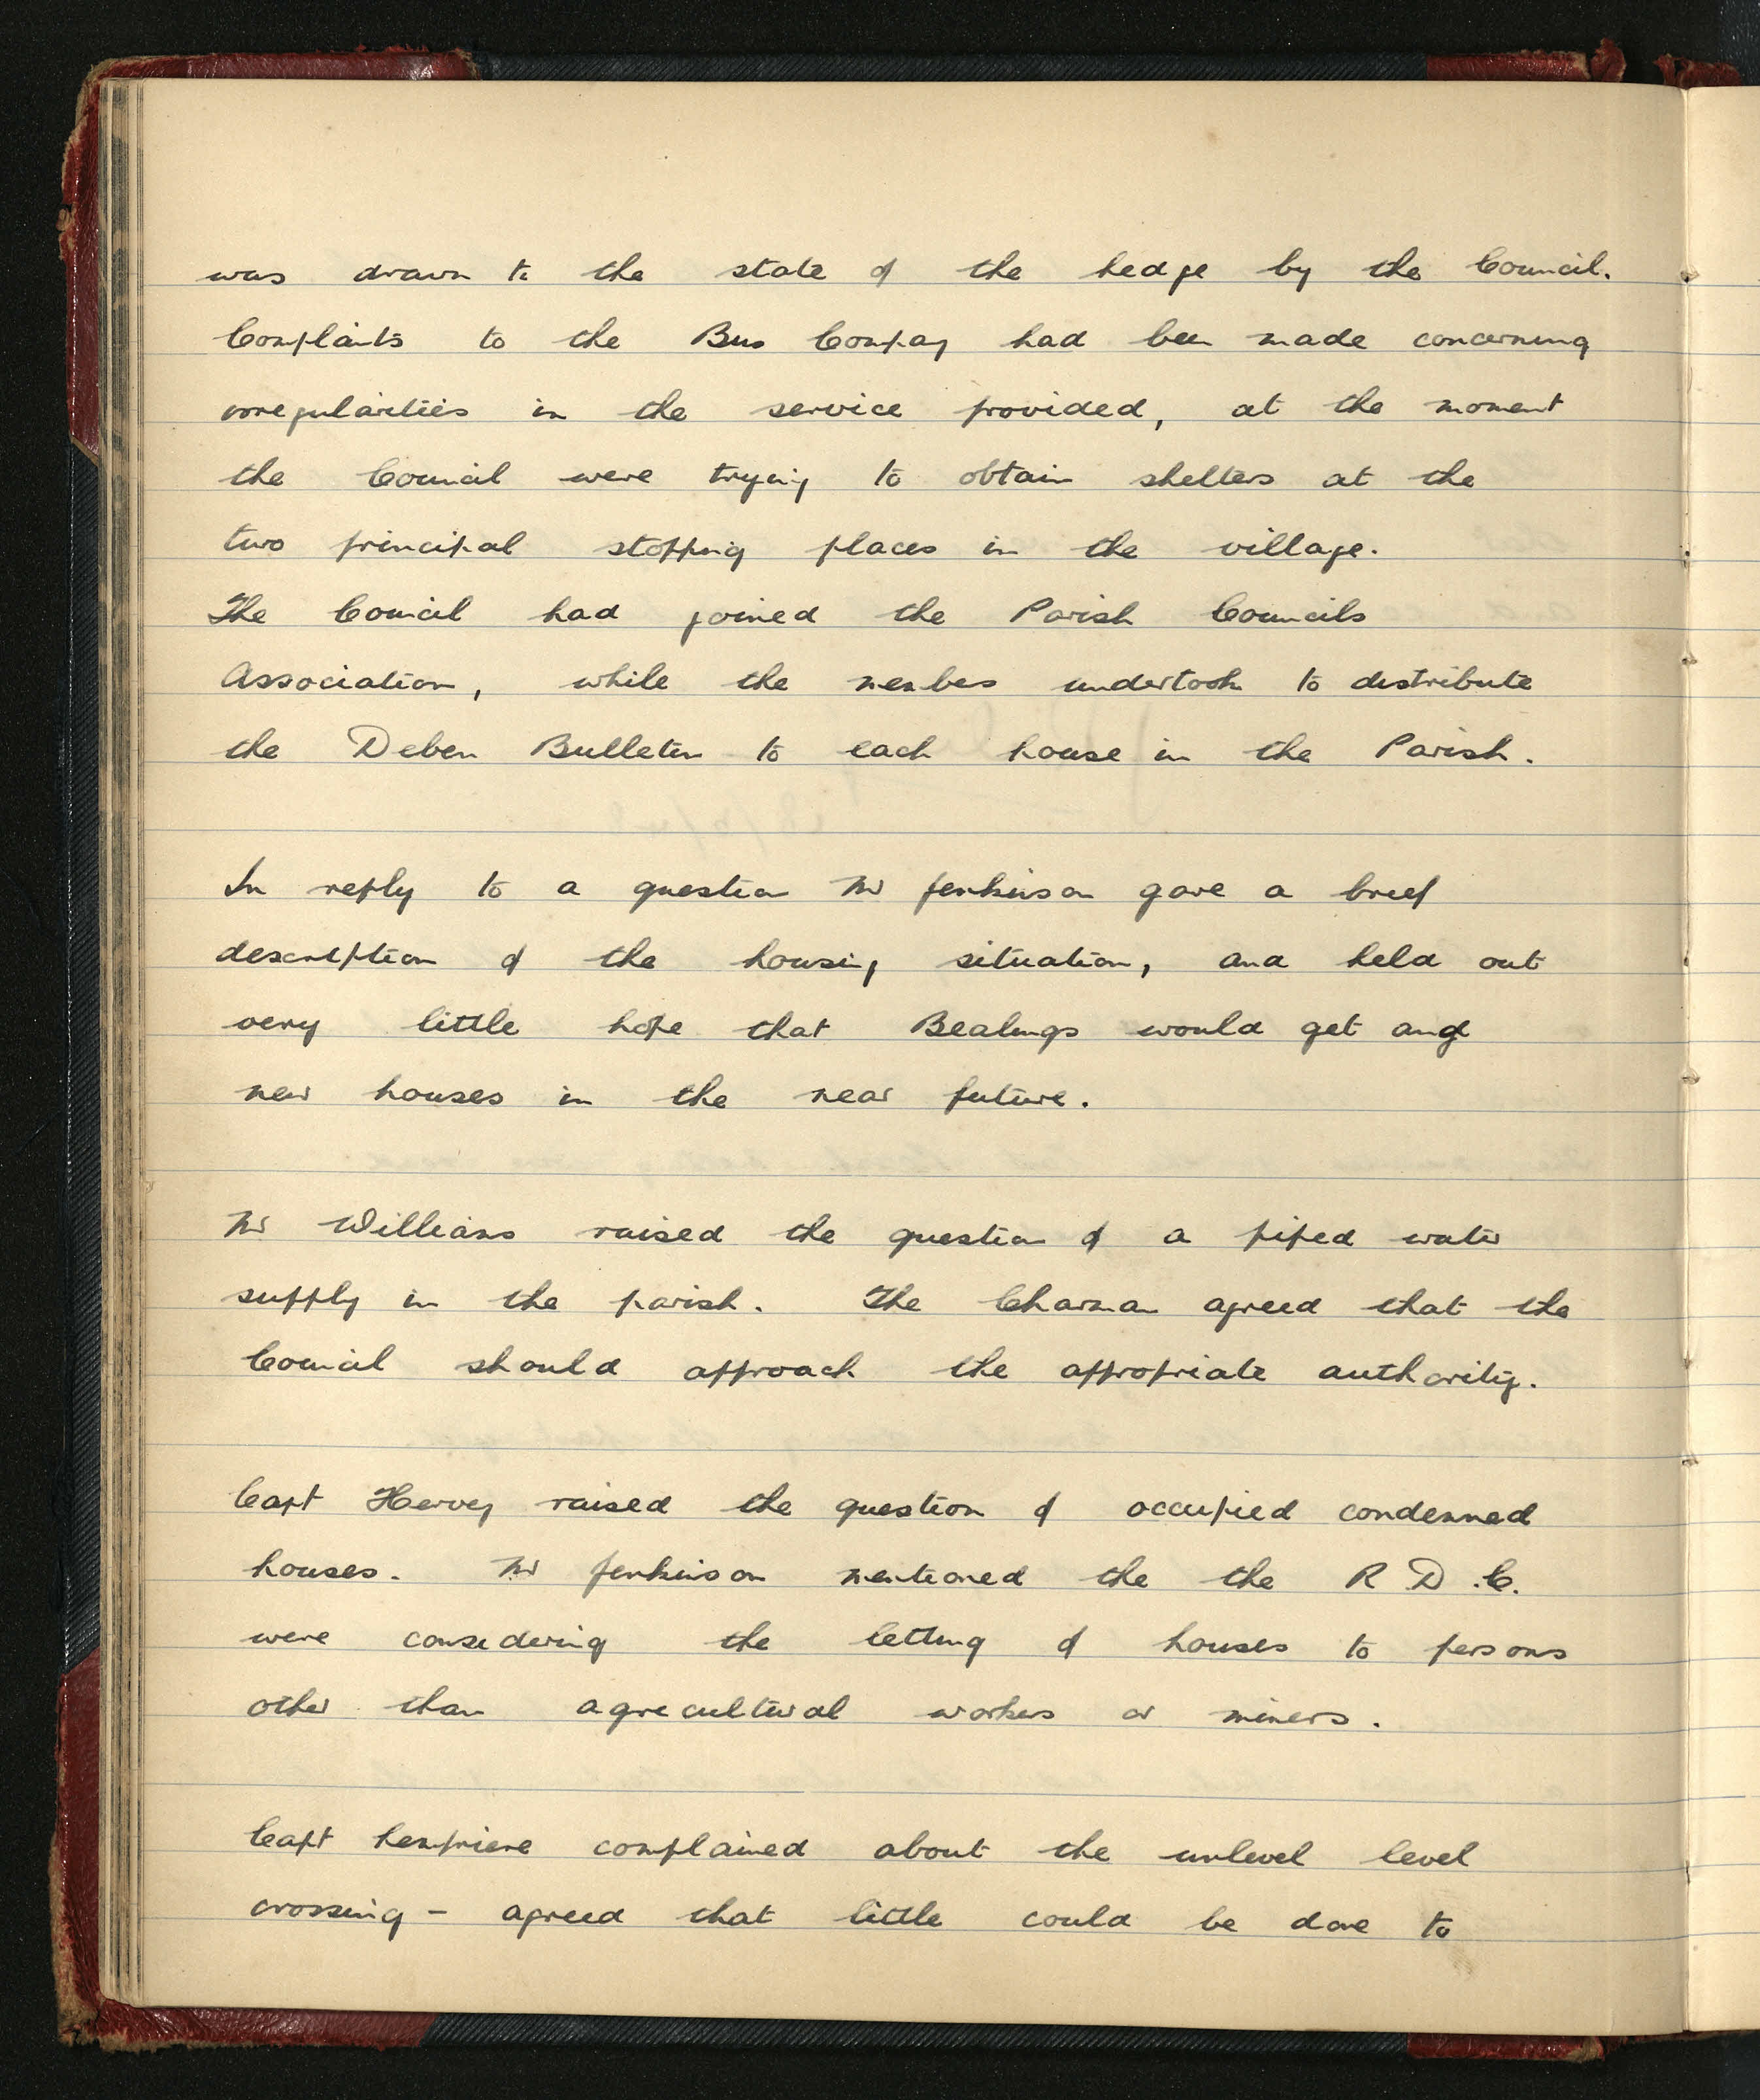 was drawn to the state of the hedge by the Council.
Complaints to the Bus Company had been made concerning
irregularities in the service provided, at the moment
the Council were trying to obtain shelters at the
two principal stopping places in the village.
The Council had joined the Parish Councils
Association, while the members undertook to distribute
the Deben Bulletin to each house in the Parish.
In reply to a question Mr Jenkinson gave a brief
description of the housing situation, and held out
very little hope that Bealings would get any
new houses in the near future.
Mr Williams raised the question of a piped water
supply in the parish. The Chairman agreed that the
Council should approach the appropriate authority.
Capt Hervey raised the question of occupied condemned
houses. Mr Jenkinson mentioned the the R D.C.
were considering the letting of houses to persons
other than agricultural workers or miners.
Capt complained about the unlevel level
crossing - agreed that little could be done to